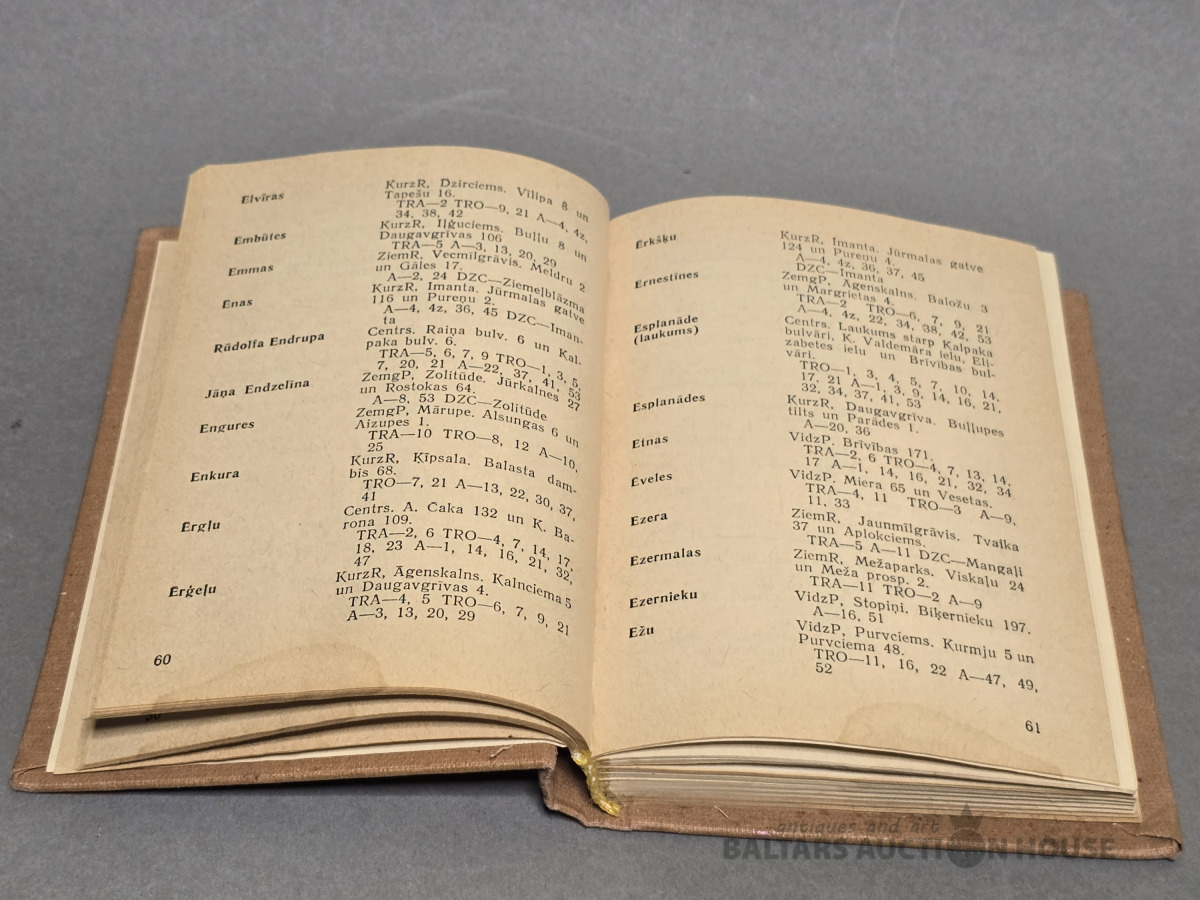 Elvīras KurzR, Dzirciems. Vīlipa 8 un
Tapešu 16.
TRA—2 TRO—9, 21 A—4, 4z,
34, 38, 42
Embūtes KurzR, Iļģuciems. Buļļu 8 un
Daugavgrīvas 106
TRA—5 A—3, 13, 20, 29
Emmas ZiemR, Vecmīlgrāvis. Meldru 2
un Gāles 17.
A—2, 24 DZC—Ziemeļblāzma
Enas KurzR, Imanta. Jūrmalas gatve
116 un Pureņu 2.
A—4, 4z, 36, 45 DZC—Iman-
ta
Rūdolfa Endrupa Centrs. Raiņa bulv. 6 un Kal-
paka bulv. 6.
TRA—5, 6, 7, 9 TRO—1, 3, 5,
7, 20, 21 A—22, 37, 41, 53
Jāņa Endzelīna ZemgP, Zolitūde. Jūrkalnes 27
un Rostokas 64.
A—8, 53 DZC—Zolitūde
Engures ZemgP, Mārupe. Alsungas 6 un
Aizupes 1.
TRA—10 TRO—8, 12 A—10,
25
Enkura KurzR, Ķīpsala. Balasta dam-
bis 68.
TRO—7, 21 A—13, 22, 30, 37,
41
Ērgļu Centrs. A. Čaka 132 un K. Ba-
rona 109.
TRA—2, 6 TRO—4, 7, 14, 17,
18, 23 A—1, 14, 16, 21, 32,
47
Ērģeļu KurzR, Āgenskalns. Kalnciema 5
un Daugavgrīvas 4.
TRA—4, 5 TRO—6, 7, 9, 21
A—3, 13, 20, 29
60
Ērkšķu KurzR, Imanta. Jūrmalas gatve
124 un Pureņu 4.
A—4, 4z, 36, 37, 45
DZC—Imanta
Ernestīnes ZemgP, Āgenskalns. Baložu 3
un Margrietas 4.
TRA—2 TRO—6, 7, 9, 21
A—4, 4z, 22, 34, 38, 42, 53
Esplanāde Centrs. Laukums starp Kalpaka
(laukums) bulvāri, K. Valdemāra ielu, Eli-
zabetes ielu un Brīvības bul-
vāri.
TRO—1, 3, 4, 5, 7, 10, 14,
17, 21 A—1, 3, 9, 14, 16, 21,
32, 34, 37, 41, 53
Esplanādes KurzR, Daugavgrīva. Buļļupes
tilts un Parādes 1.
A—20, 36
Etnas VidzP. Brīvības 171.
TRA—2, 6 TRO—4, 7, 13, 14,
17 A—1, 14, 16, 21, 32, 34
Ēveles VidzP. Miera 65 un Vesetas.
TRA—4, 11 TRO—3 A—9,
11, 33
Ezera ZiemR, Jaunmīlgrāvis. Tvaika
37 un Aplokciems.
TRA—5 A—11 DZC—Mangaļi
Ezermalas ZiemR, Mežaparks. Viskaļu 24
un Meža prosp. 2.
TRA—11 TRO—2 A—9
Ezernieku VidzP, Stopiņi. Biķernieku 197.
A—16, 51
Ežu VidzP, Purvciems. Kurmju 5 un
Purvciema 48.
TRO—11, 16, 22 A—47, 49,
52
61
antiques and art
BALTARS AUCTION HOUSE